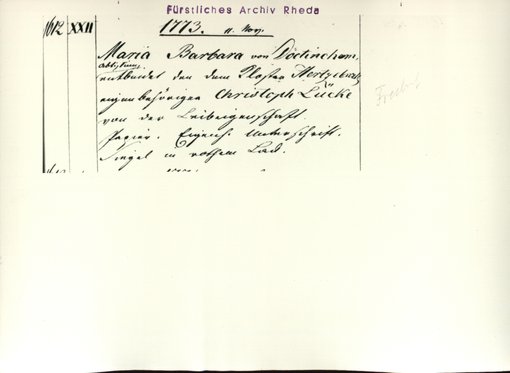 Fürstliches Archiv Rheda
1612 XXII 1773. 11. Nov.
Maria Barbara von Döstinchem,
Abbtissin,
entbindet den dem Kloster
eigenbehörigen Christoph Lücke
von der Leibeigenschaft
Papier. Eigenh. Unterschrift.
Siegel in rothem Lack.